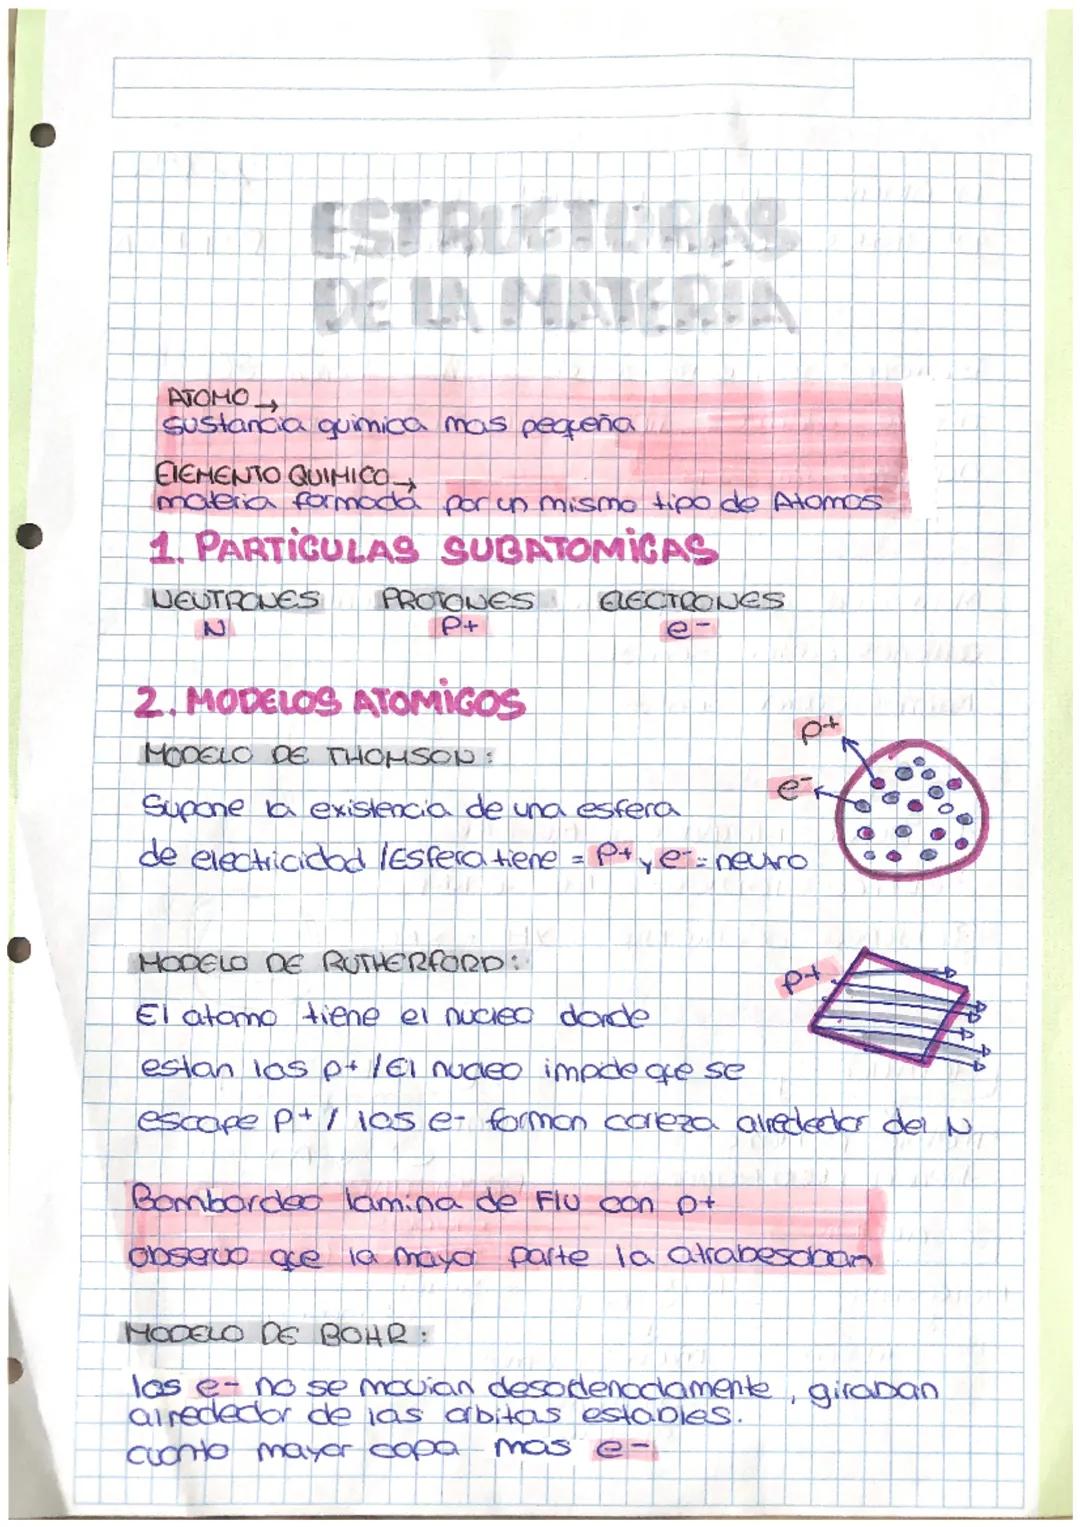 ESTRUCTURAS
DE LA MATERIA
ATOMO →
sustancia quimica mas pequeña
ElEMENTO QUIMICO →
materia formada por un mismo tipo de Atomos
1. PARTICULAS SUBATOMICAS
NEUTRONES PROTONES ELECTRONES
N P+ e-
2. MODELOS ATOMICOS
MODELO DE THOMSON:
p+
e-
Supone la existencia de una esfera
de electricidad /Esfera tiene = P+ y e- = neutro
MODELO DE RUTHERFORD:
p+
El atomo tiene el nucleo donde
estan las p+ /El nucleo impide que se
escape p+ / las e- forman coreza alrededor del N
Bombardeo lamina de Flu con p+
observo que la mayor parte la atrabesaban
MODELO DE BOHR:
las e- no se movian desordenadamente, giraban
alrededor de las orbitas estables.
cuanto mayor capa mas e-